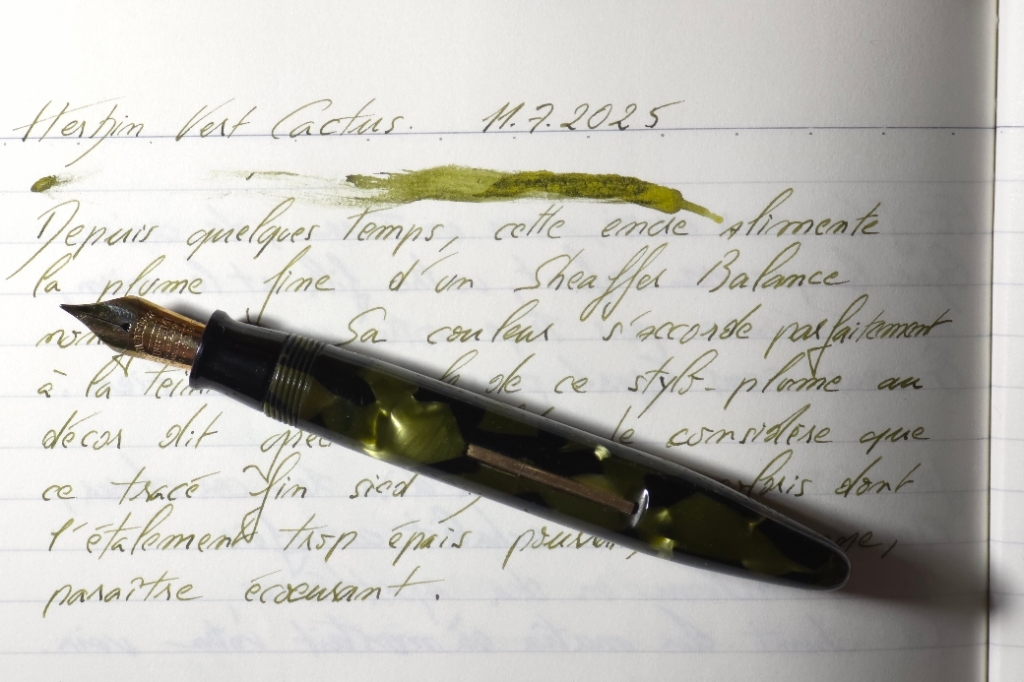 Herbin Vert Cactus. 11.7.2025
Depuis quelques temps, cette encre alimente
la plume fine d'un Sheaffer Balance
Sa couleur s'accorde parfaitement
à la de ce stylo-plume au
décor dit considère que
ce tracé fin sied dont
l'étalement trop épais
paraître écœurant.